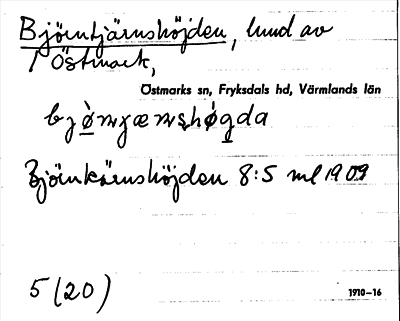 Björntjärnshöjden, lund av
/ Östmark,
Östmarks sn, Fryksdals hd, Värmlands län
Björnkärnshöjden 8:5 ml 1909
5 (20)
1910–16